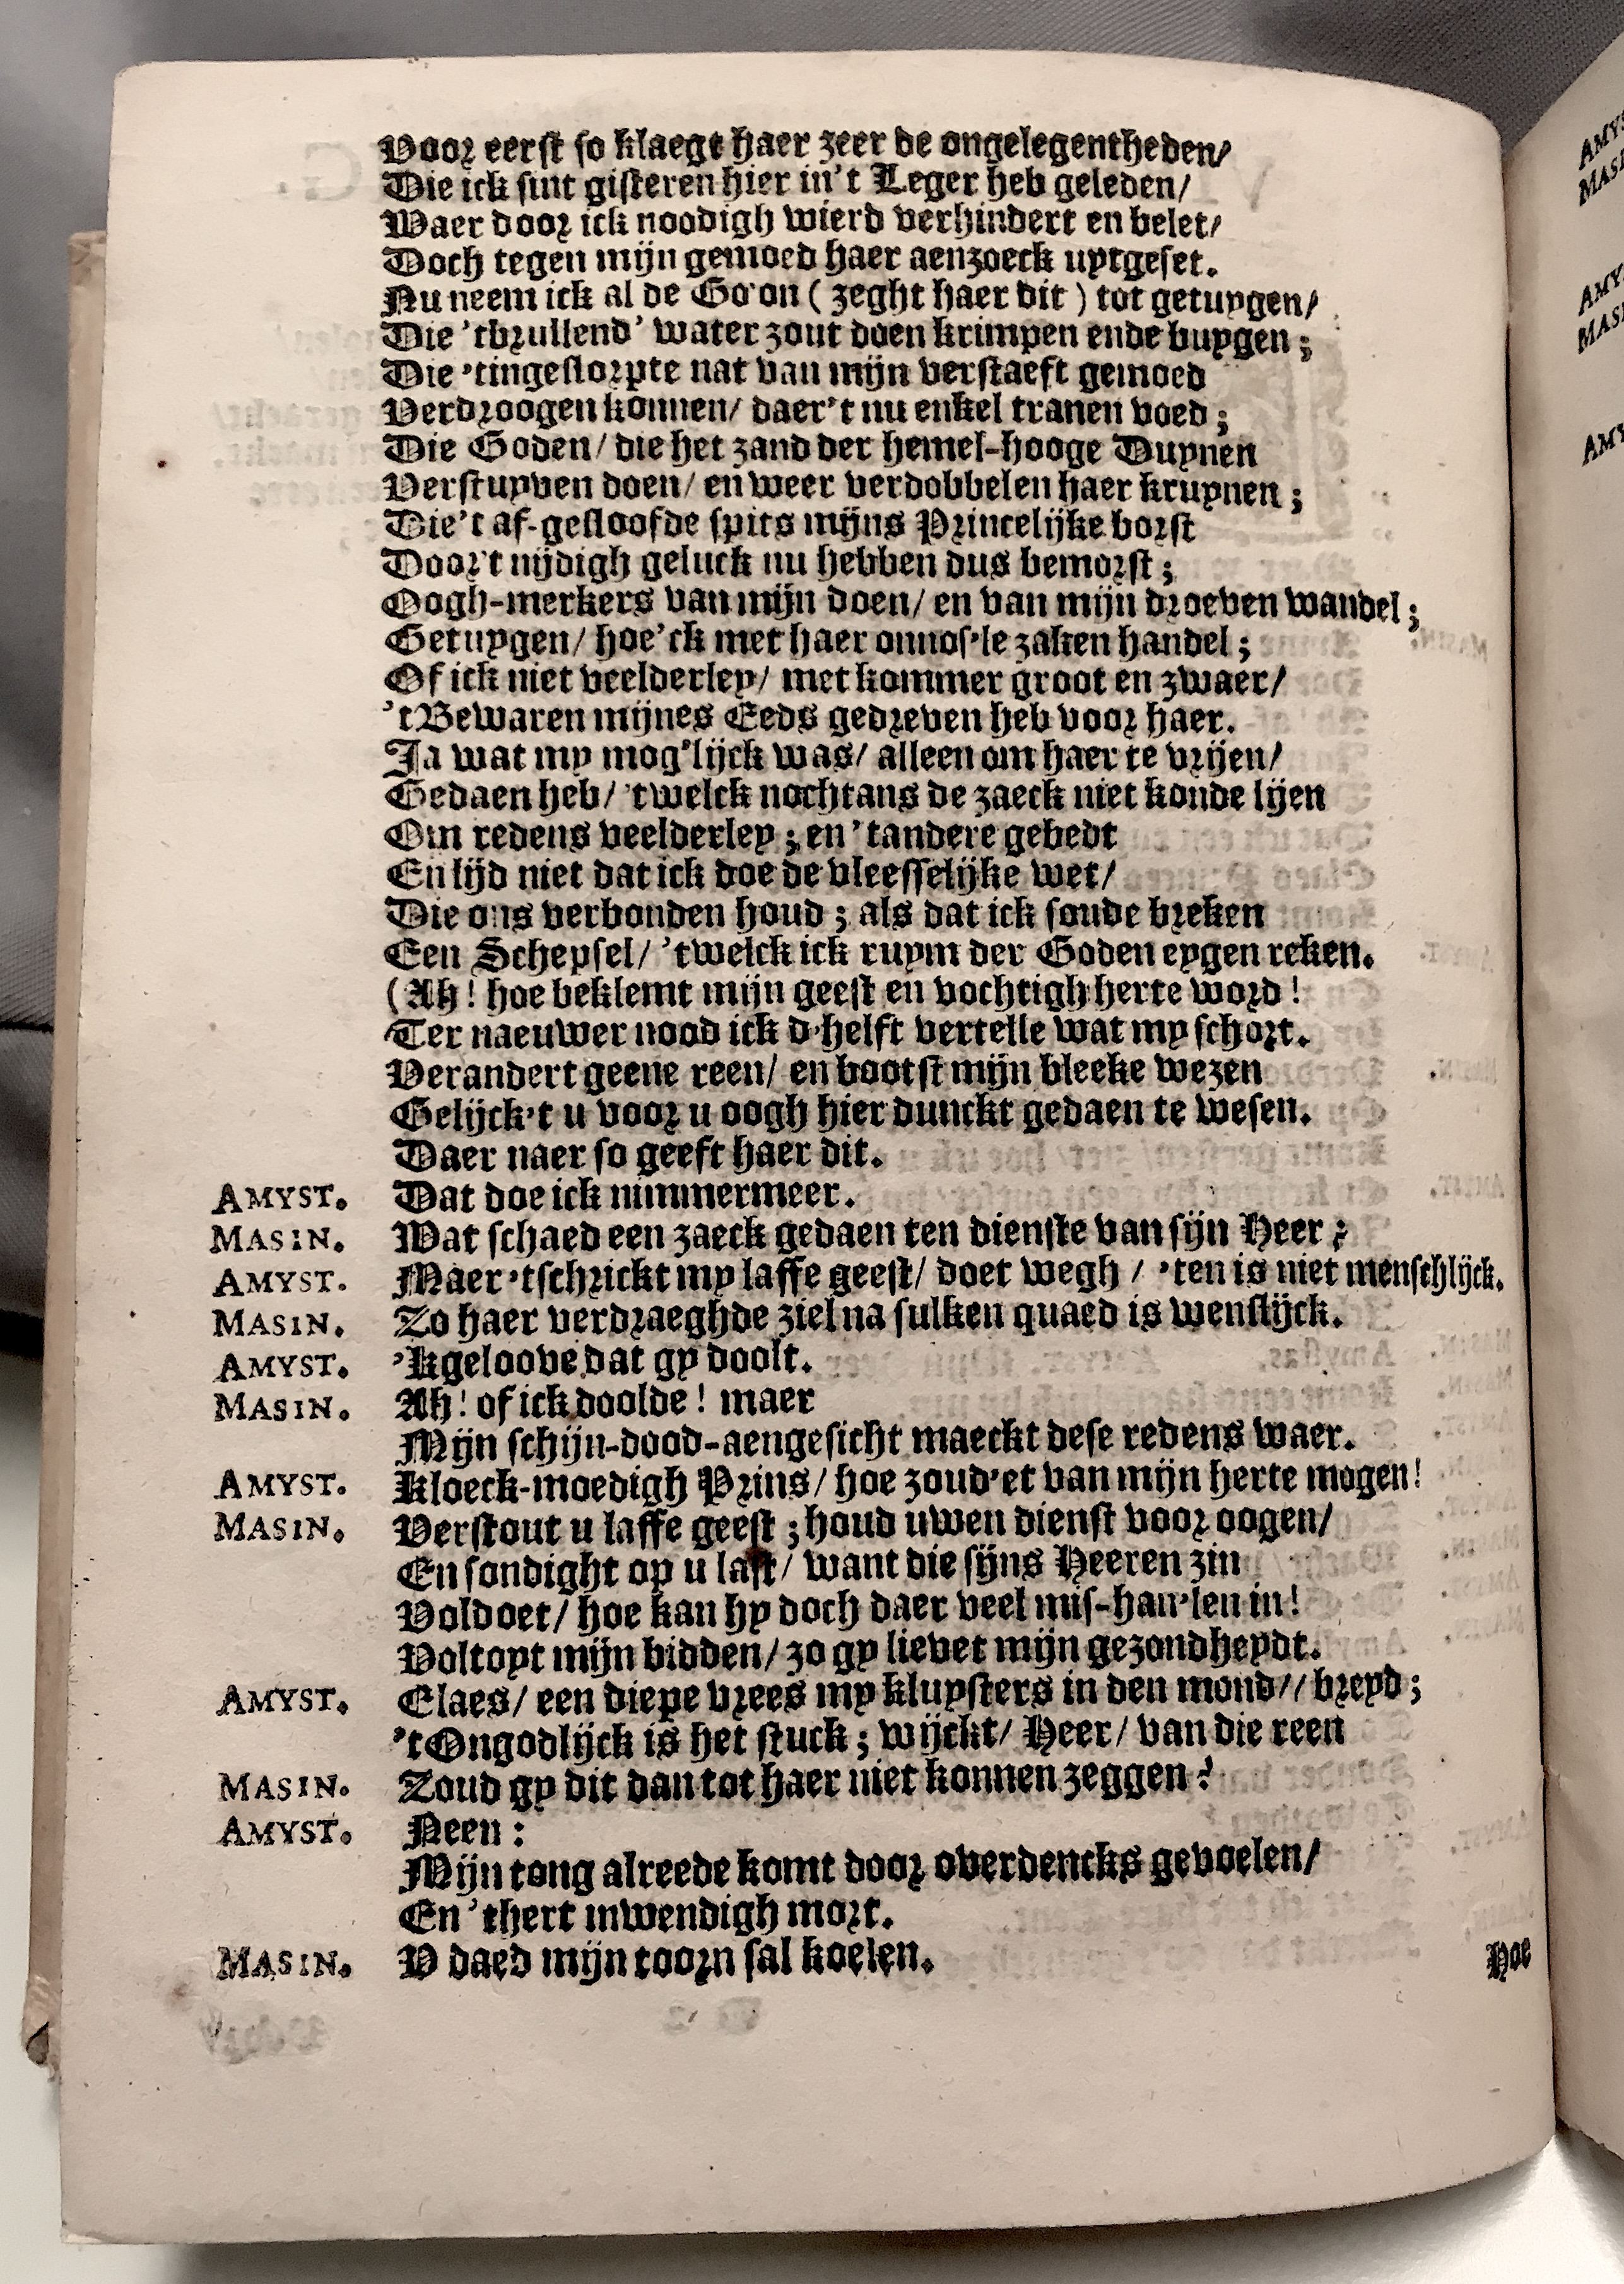 Voor eerst so klaegt haer zeer de ongelegentheden/
Die ick sint gisteren hier in't Leger heb geleden/
Waer door ick noodigh wierd verhindert en belet/
Doch tegen mijn gemoed haer aenzoeck uytgeset.
Nu neem ick al de Go'on ( zeght haer dit ) tot getuygen/
Die 'tbrullend' water zout doen krimpen ende buygen ;
Die 'tingeslorpte nat van mijn verstaeft gemoed
Verdroogen konnen/ daer't nu enkel tranen voed ;
Die Goden/ die het zand der hemel-hooge Duynen
Verstuyven doen/ en weer verdobbelen haer kruynen ;
Die't af-geslоofde spits mijns Princelijke borst
Door't nijdigh geluck nu hebben dus bemorst ;
Oogh-merkers van mijn doen/ en van mijn droeven wandel ;
Getuygen/ hoe'ck met haer onnos'le zaken handel ;
Of ick niet veelderley/ met kommer groot en zwaer/
't Bewaren mijnes Eeds gedreven heb voor haer.
Ja wat my mog'lijck was/ alleen om haer te vrijen/
Gedaen heb/ 'twelck nochtans de zaeck niet konde lijen
Om redens veelderley ; en 'tandere gebedt
En lijd niet dat ick doe de vleesselijke wet/
Die ons verbonden houd ; als dat ick soude breken
Een Schepsel/ 'twelck ick ruym der Goden eygen reken.
(Ah ! hoe beklemt mijn geest en vochtigh herte word !
Ter naeuwer nood ick d'helft vertelle wat my schort.
Verandert geene reen/ en bootst mijn bleeke wezen
Gelijck't u voor u oogh hier dunckt gedaen te wesen.
Daer naer so geeft haer dit.
AMYST. Dat doe ick nimmermeer.
MASIN. Wat schaed een zaeck gedaen ten dienste van sijn Heer ?
AMYST. Maer 'tschrickt my laffe geest/ doet wegh / 'ten is niet menschlijck.
MASIN. Zo haer verdraeghde ziel na sulken quaed is wenslijck.
AMYST. 'Kgeloove dat gy doolt.
MASIN. Ah ! of ick doolde ! maer
Mijn schijn-dood-aengesicht maeckt dese redens waer.
AMYST. Kloeck-moedigh Prins/ hoe zoud'et van mijn herte mogen !
MASIN. Verstout u laffe geest ; houd uwen dienst voor oogen/
En sondight op u last/ want die sijns Heeren zin
Voldoet/ hoe kan hy doch daer veel mis-han'len in !
Voltoyt mijn bidden/ zo gy lievet mijn gezondheydt.
AMYST. Elaes/ een diepe vrees my kluysters in den mond// breyd ;
't Ongodlijck is het stuck ; wijckt/ Heer/ van die reen
MASIN. Zoud gy dit dan tot haer niet konnen zeggen ?
AMYST. Neen :
Mijn tong alreede komt door overdencks gevoelen/
En 'thert inwendigh mort.
MASIN. V daed mijn toorn sal koelen.
Hoe